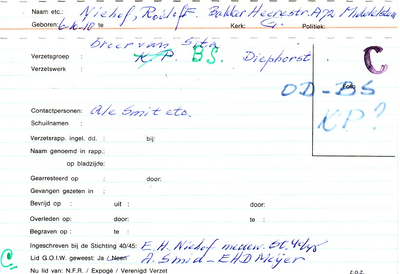 Naam etc.: Niehof, Roelof F. Bakker Heerestr. A72 Middelstum
Geboren: 6-10-18 Kerk: G. Politiek:
Broer van Sita
Verzetsgroep : K.P. BS. Diephorst. C
Verzetswerk :
OD-BS
KP?
Contactpersonen: Ale Smit etc.
Schuilnamen :
Verzetsrapp. ingel. dd. : bij:
Naam genoemd in rapp.:
op bladzijde:
Gearresteerd op : door:
Gevangen gezeten in :
Bevrijd op : uit : door:
Overleden op: door: te :
Begraven op : te :
Ingeschreven bij de Stichting 40/45: E.H. Niehof medew. St. 40/45
C. Lid G.O.I.W. geweest: Ja / Neen A. Smid - EHD Meijer
Nu lid van: N.F.R. / Expogé / Verenigd Verzet z.o.z.